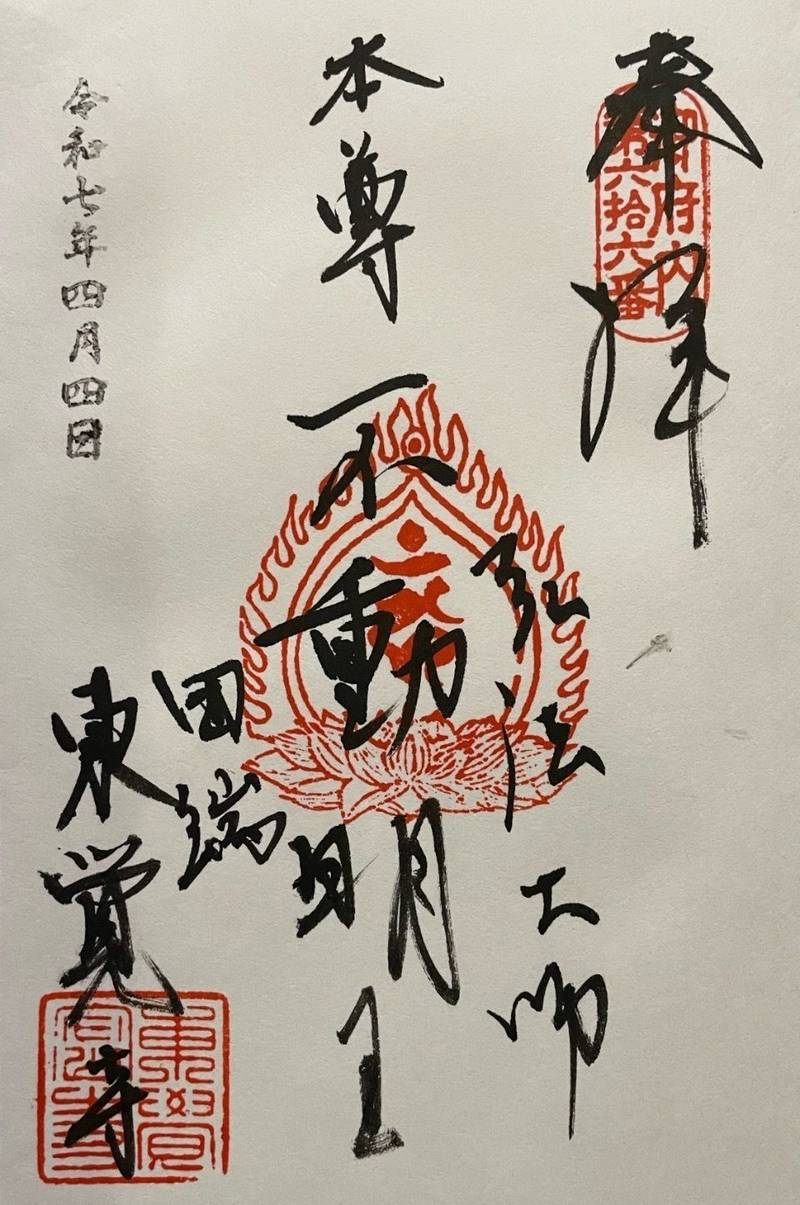 奉拝
御府内
第六拾六番
弘法大師
本尊不動明王
田端
東覚寺
東覺寺
令和七年四月四日